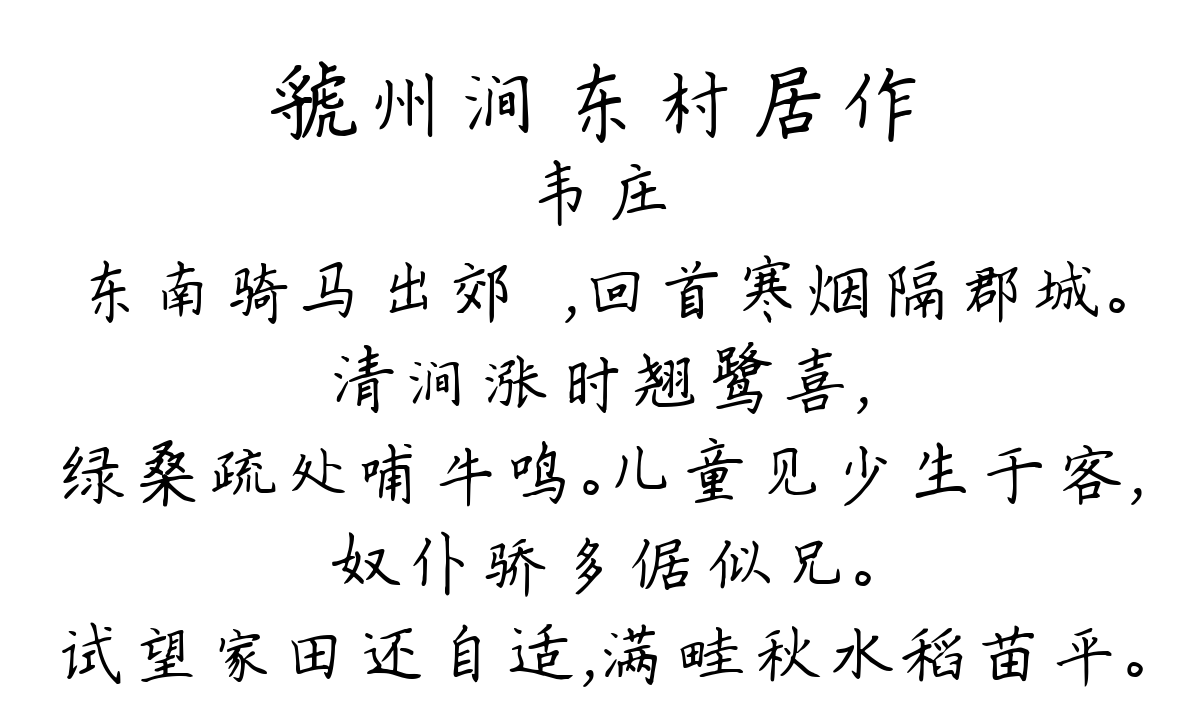 虢州涧东村居作
韦庄
东南骑马出郊 ,回首寒烟隔郡城。
清涧涨时翘鹭喜,
绿桑疏处哺牛鸣。儿童见少生于客,
奴仆骄多倨似兄。
试望家田还自适,满畦秋水稻苗平。